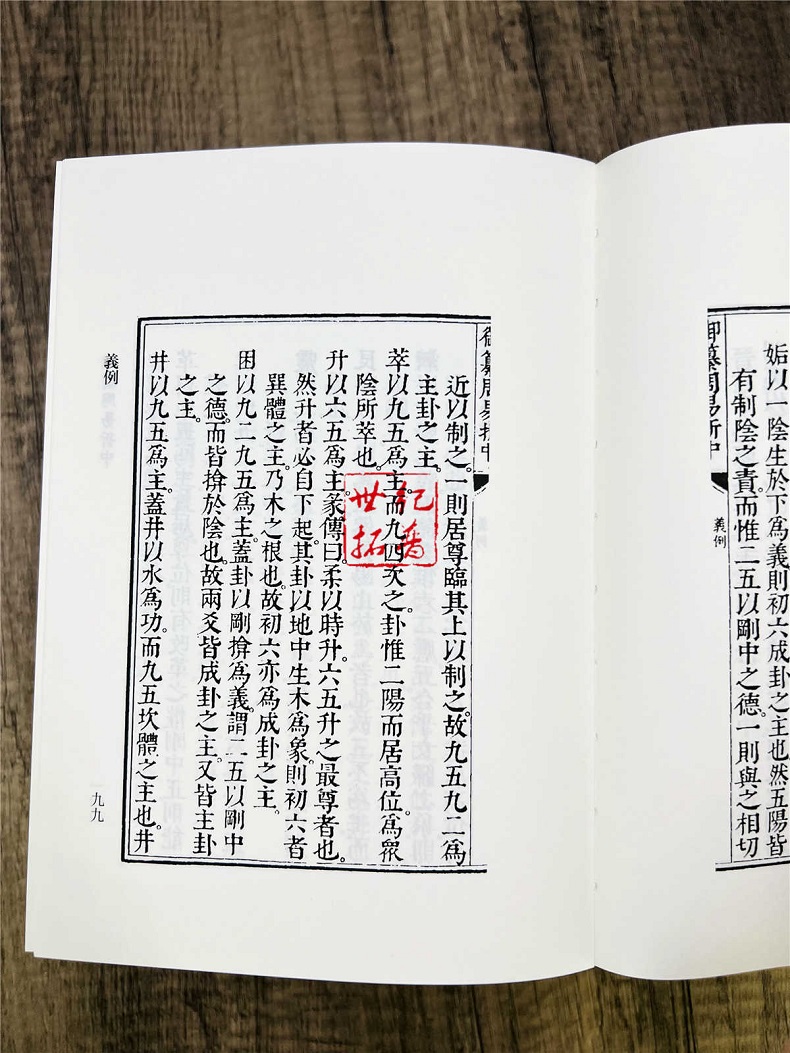 姤以一陰生於下爲義則初六成卦之主也然五陽皆
有制陰之責而惟二五以剛中之德一則與之相切
義例
近以制之一則居尊臨其上以制之故九五九二爲
主卦之主
萃以九五爲主而九四次之卦惟二陽而居高位爲衆
陰所萃也
升以六五爲主彖傳曰柔以時升六五升之最尊者也
然升者必自下起其卦以地中生木爲象則初六者
巽體之主乃木之根也故初六亦爲成卦之主
困以九二九五爲主蓋卦以剛揜爲義謂二五以剛中
之德而皆揜於陰也故兩爻皆成卦之主又皆主卦
之主
井以九五爲主蓋井以水爲功而九五坎體之主也井
義例
九九